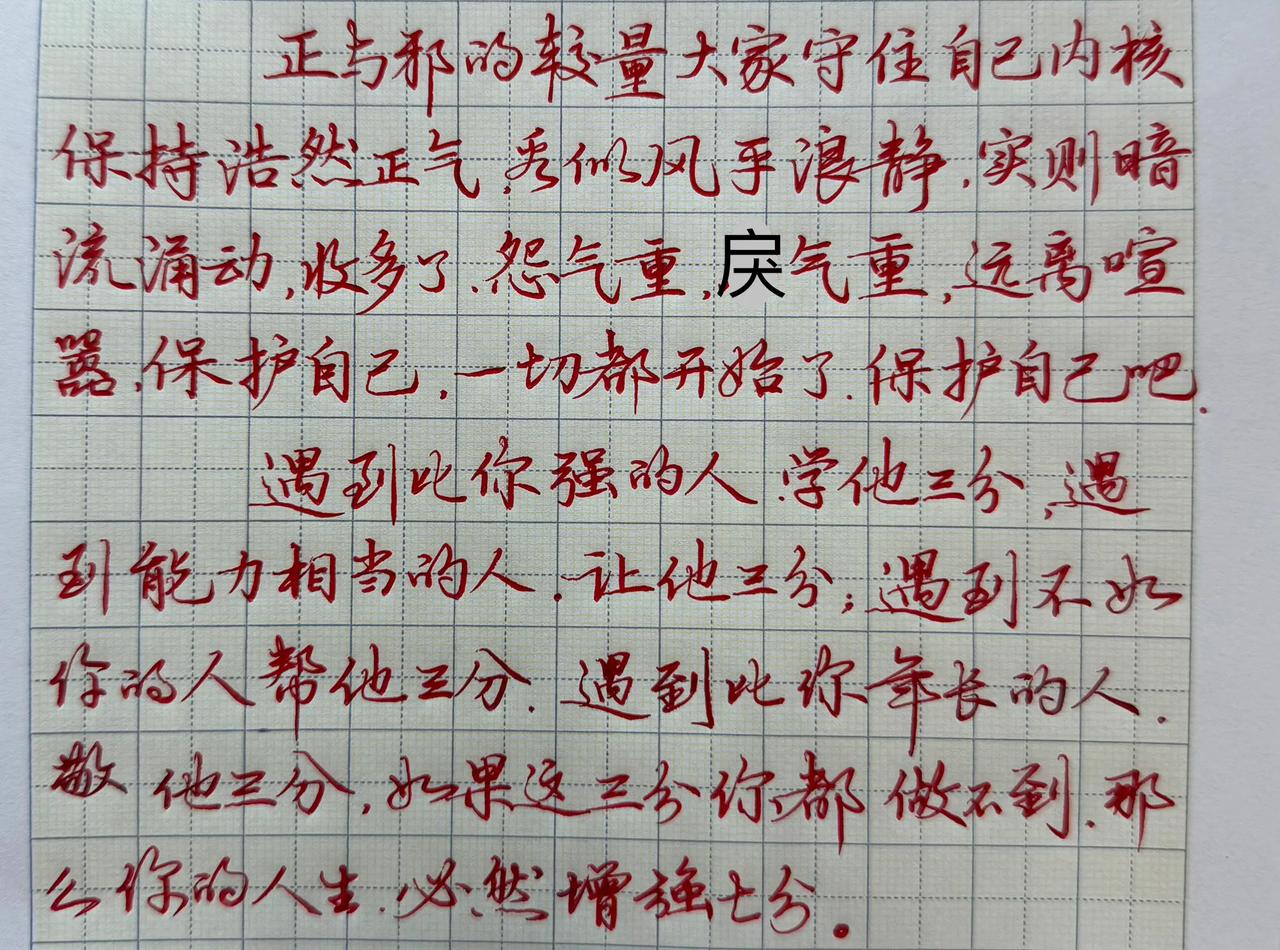 正与邪的较量大家守住自己内核
保持浩然正气,看似风平浪静.实则暗
流涌动,收多了.怨气重,戾气重,远离喧
嚣.保护自己.一切都开始了.保护自己吧.
遇到比你强的人.学他三分,遇
到能力相当的人.让他三分;遇到不如
你的人帮他三分.遇到比你年长的人.
敬他三分,如果这三分你都做不到.那
么你的人生.必然增强七分。